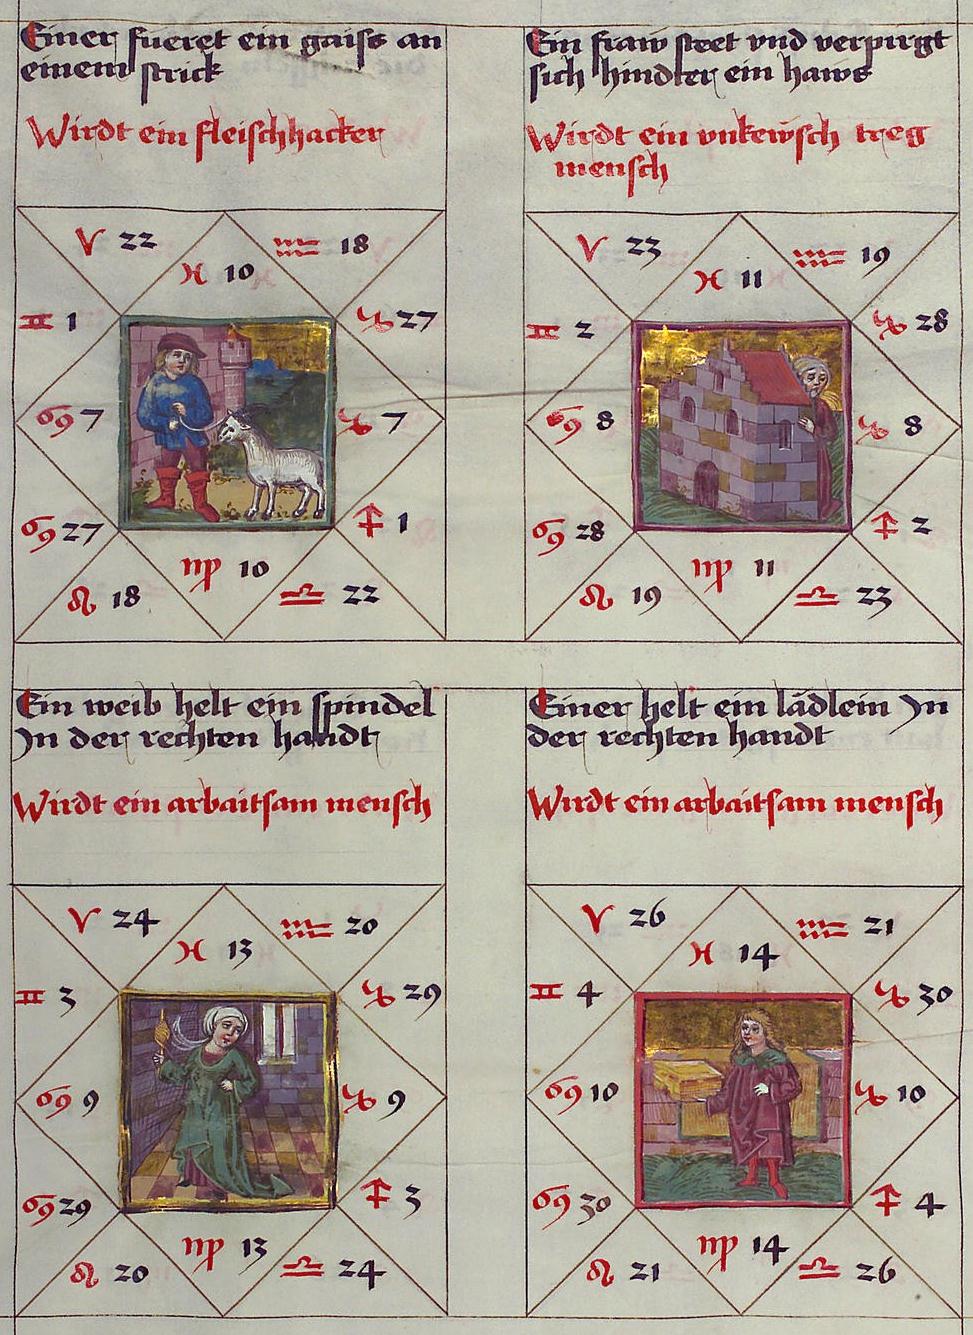 Einer fueret ein gaiss an
einem strick
Wirdt ein fleischhacker
♈ 22
♓ 10
♒ 18
♊ 1
♑ 27
♋ 7
♑ 7
♋ 27
♐ 1
♌ 18
♍ 10
♎ 22
Ein fraw steet vnd verpirgt
sich hindter ein haws
Wirdt ein vnkewsch treg
mensch
♈ 23
♓ 11
♒ 19
♊ 2
♑ 28
♋ 8
♑ 8
♋ 28
♐ 2
♌ 19
♍ 11
♎ 23
Ein weib helt ein spindel
In der rechten handt
Wirdt ein arbaitsam mensch
♈ 24
♓ 13
♒ 20
♊ 3
♑ 29
♋ 9
♑ 9
♋ 29
♐ 3
♌ 20
♍ 13
♎ 24
Einer helt ein lädlein In
der rechten handt
Wirdt ein arbaitsam mensch
♈ 26
♓ 14
♒ 21
♊ 4
♑ 30
♋ 10
♑ 10
♋ 30
♐ 4
♌ 21
♍ 14
♎ 26